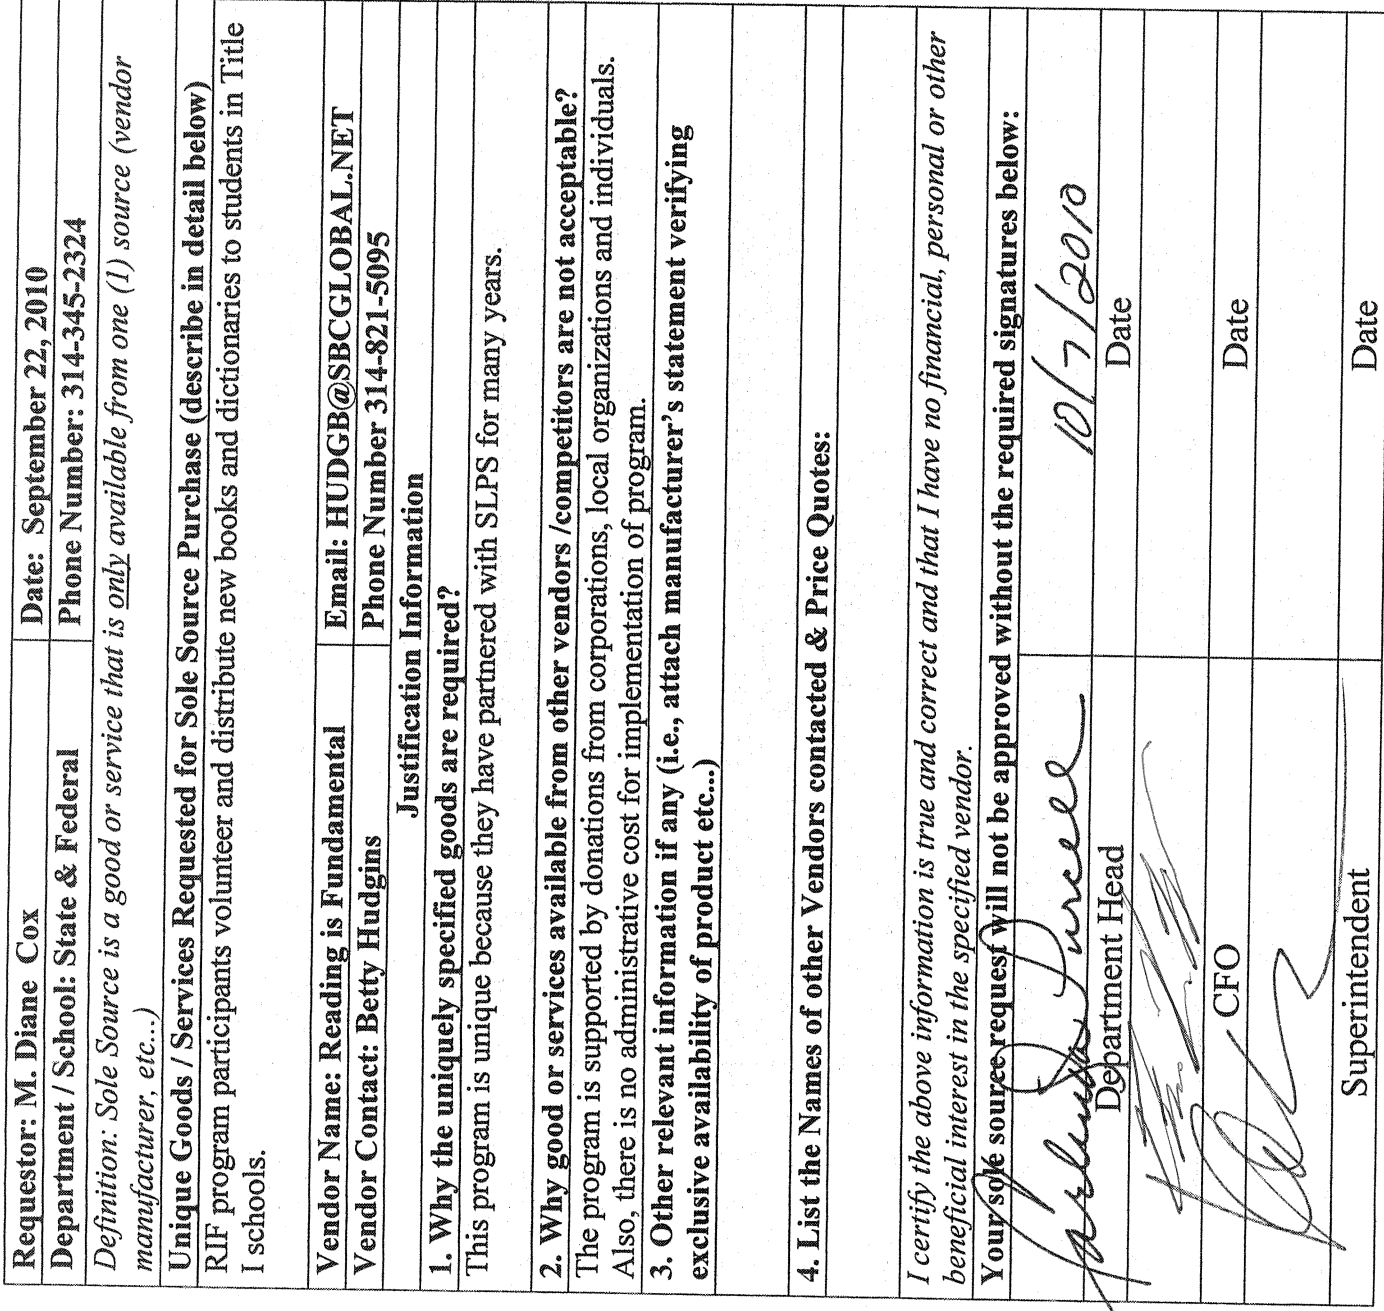 Requestor: M. Diane Cox
Date: September 22, 2010
Department / School: State & Federal
Phone Number: 314-345-2324
Definition: Sole Source is a good or service that is only available from one (1) source (vendor
manufacturer, etc...)
Unique Goods / Services Requested for Sole Source Purchase (describe in detail below)
RIF program participants volunteer and distribute new books and dictionaries to students in Title
I schools.
Vendor Name: Reading is Fundamental
Email: HUDGB@SBCGLOBAL.NET
Vendor Contact: Betty Hudgins
Phone Number 314-821-5095
Justification Information
1. Why the uniquely specified goods are required?
This program is unique because they have partnered with SLPS for many years.
2. Why good or services available from other vendors /competitors are not acceptable?
The program is supported by donations from corporations, local organizations and individuals.
Also, there is no administrative cost for implementation of program.
3. Other relevant information if any (i.e., attach manufacturer's statement verifying
exclusive availability of product etc...)
4. List the Names of other Vendors contacted & Price Quotes:
I certify the above information is true and correct and that I have no financial, personal or other
beneficial interest in the specified vendor.
Your sole source request will not be approved without the required signatures below:
10/7/2010
Department Head
Date
CFO
Date
Superintendent
Date